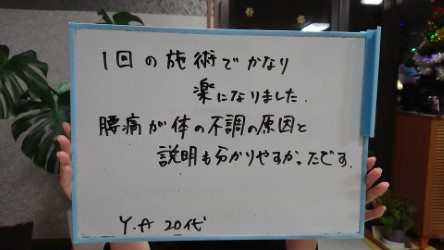 1回の施術でかなり
楽になりました.
腰痛が体の不調の原因と
説明も分かりやすかったです.
Y.A 20代